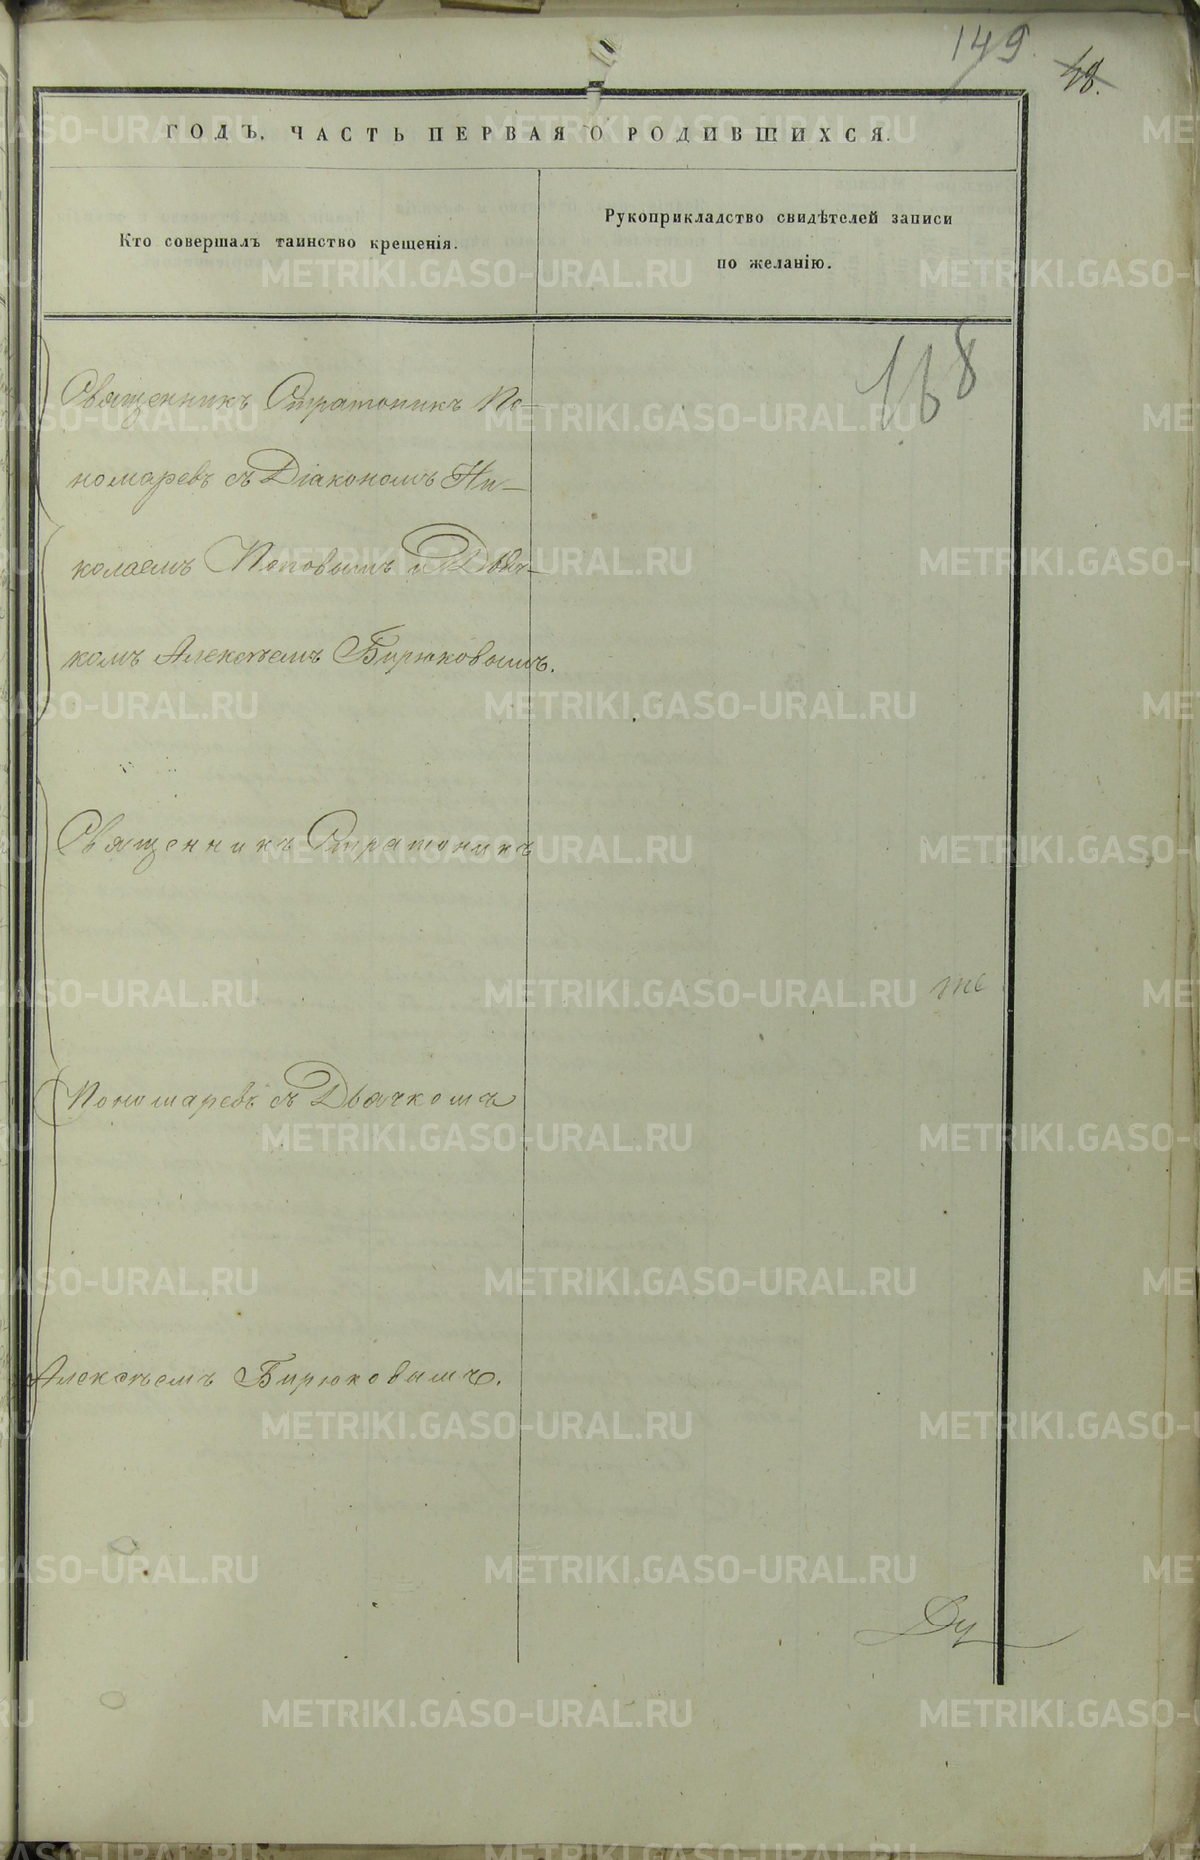 149.
48.
ГОДЪ, ЧАСТЬ ПЕРВАЯ О РОДИВШИХСЯ.
Кто совершалъ таинство крещенія.
Рукоприкладство свидѣтелей записи
по желанію.
168
Священникъ Стратоникъ По-
номаревъ съ Діакономъ Ни-
колаемъ Поповымъ и Дьяч-
комъ Алексѣемъ Бирюковымъ.
Священникъ Стратоникъ
те
Пономаревъ съ Дьячкомъ
Алексѣемъ Бирюковымъ.
METRIKI.GASO-URAL.RU